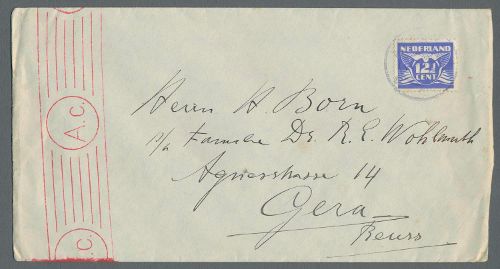 NEDERLAND
12½
CENT
A.c.
Herrn H. Born
p/a Familie Dr. R. E. Wohlmuth
Agnesstrasse 14
Gera
Reuss
A.c.